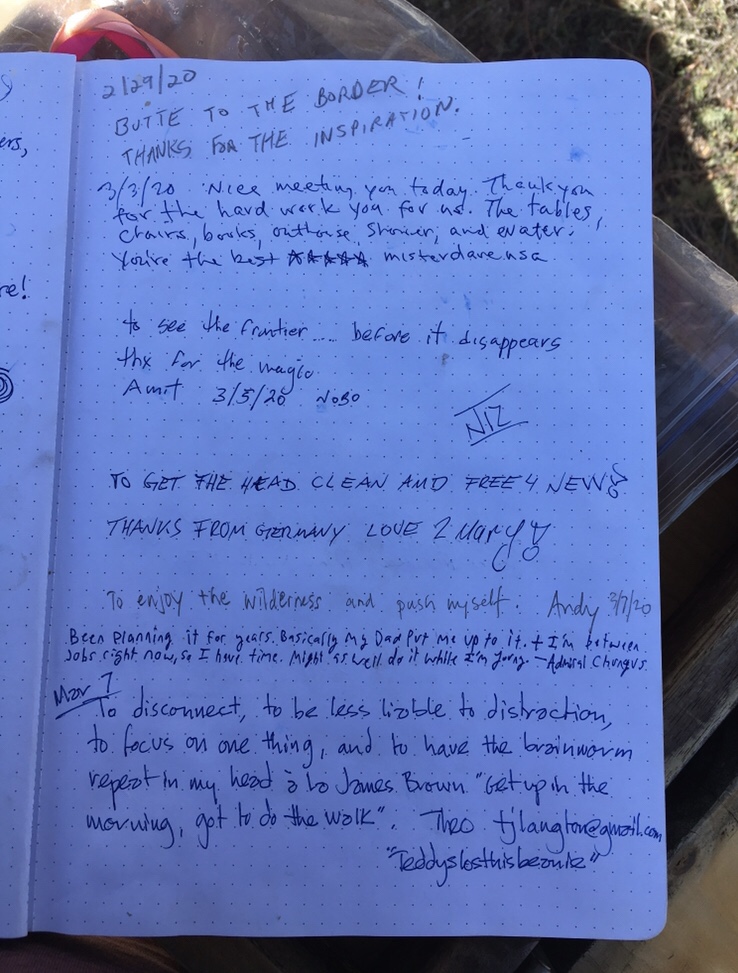 ers,
re!
2/29/20
BUTTE TO THE BORDER!
THANKS FOR THE INSPIRATION.
3/3/20 Nice meeting you today. Thank you
for the hard work you for us. The tables,
chairs, books, outhouse, shower, and water.
You're the best ★★★★★ misterdaveusa
to see the fruntier.... before it disappears
thx for the magic.
Amit 3/5/20 NOBO
TO GET THE HEAD CLEAN AND FREE 4 NEW
THANKS FROM GERMANY LOVE 2 MARY
To enjoy the wilderness and push myself. Andy 3/7/20
Been planning it for years. Basically my Dad put me up to it. + I'm between
jobs right now, so I have time. Might as well do it while I'm young. - Admiral Chungus.
Mar 7
To disconnect, to be less liable to distraction,
to focus on one thing, and to have the brainworm
repeat in my head à la James Brown "Get up in the
morning, got to do the walk". Theo tjlangton@gmail.com